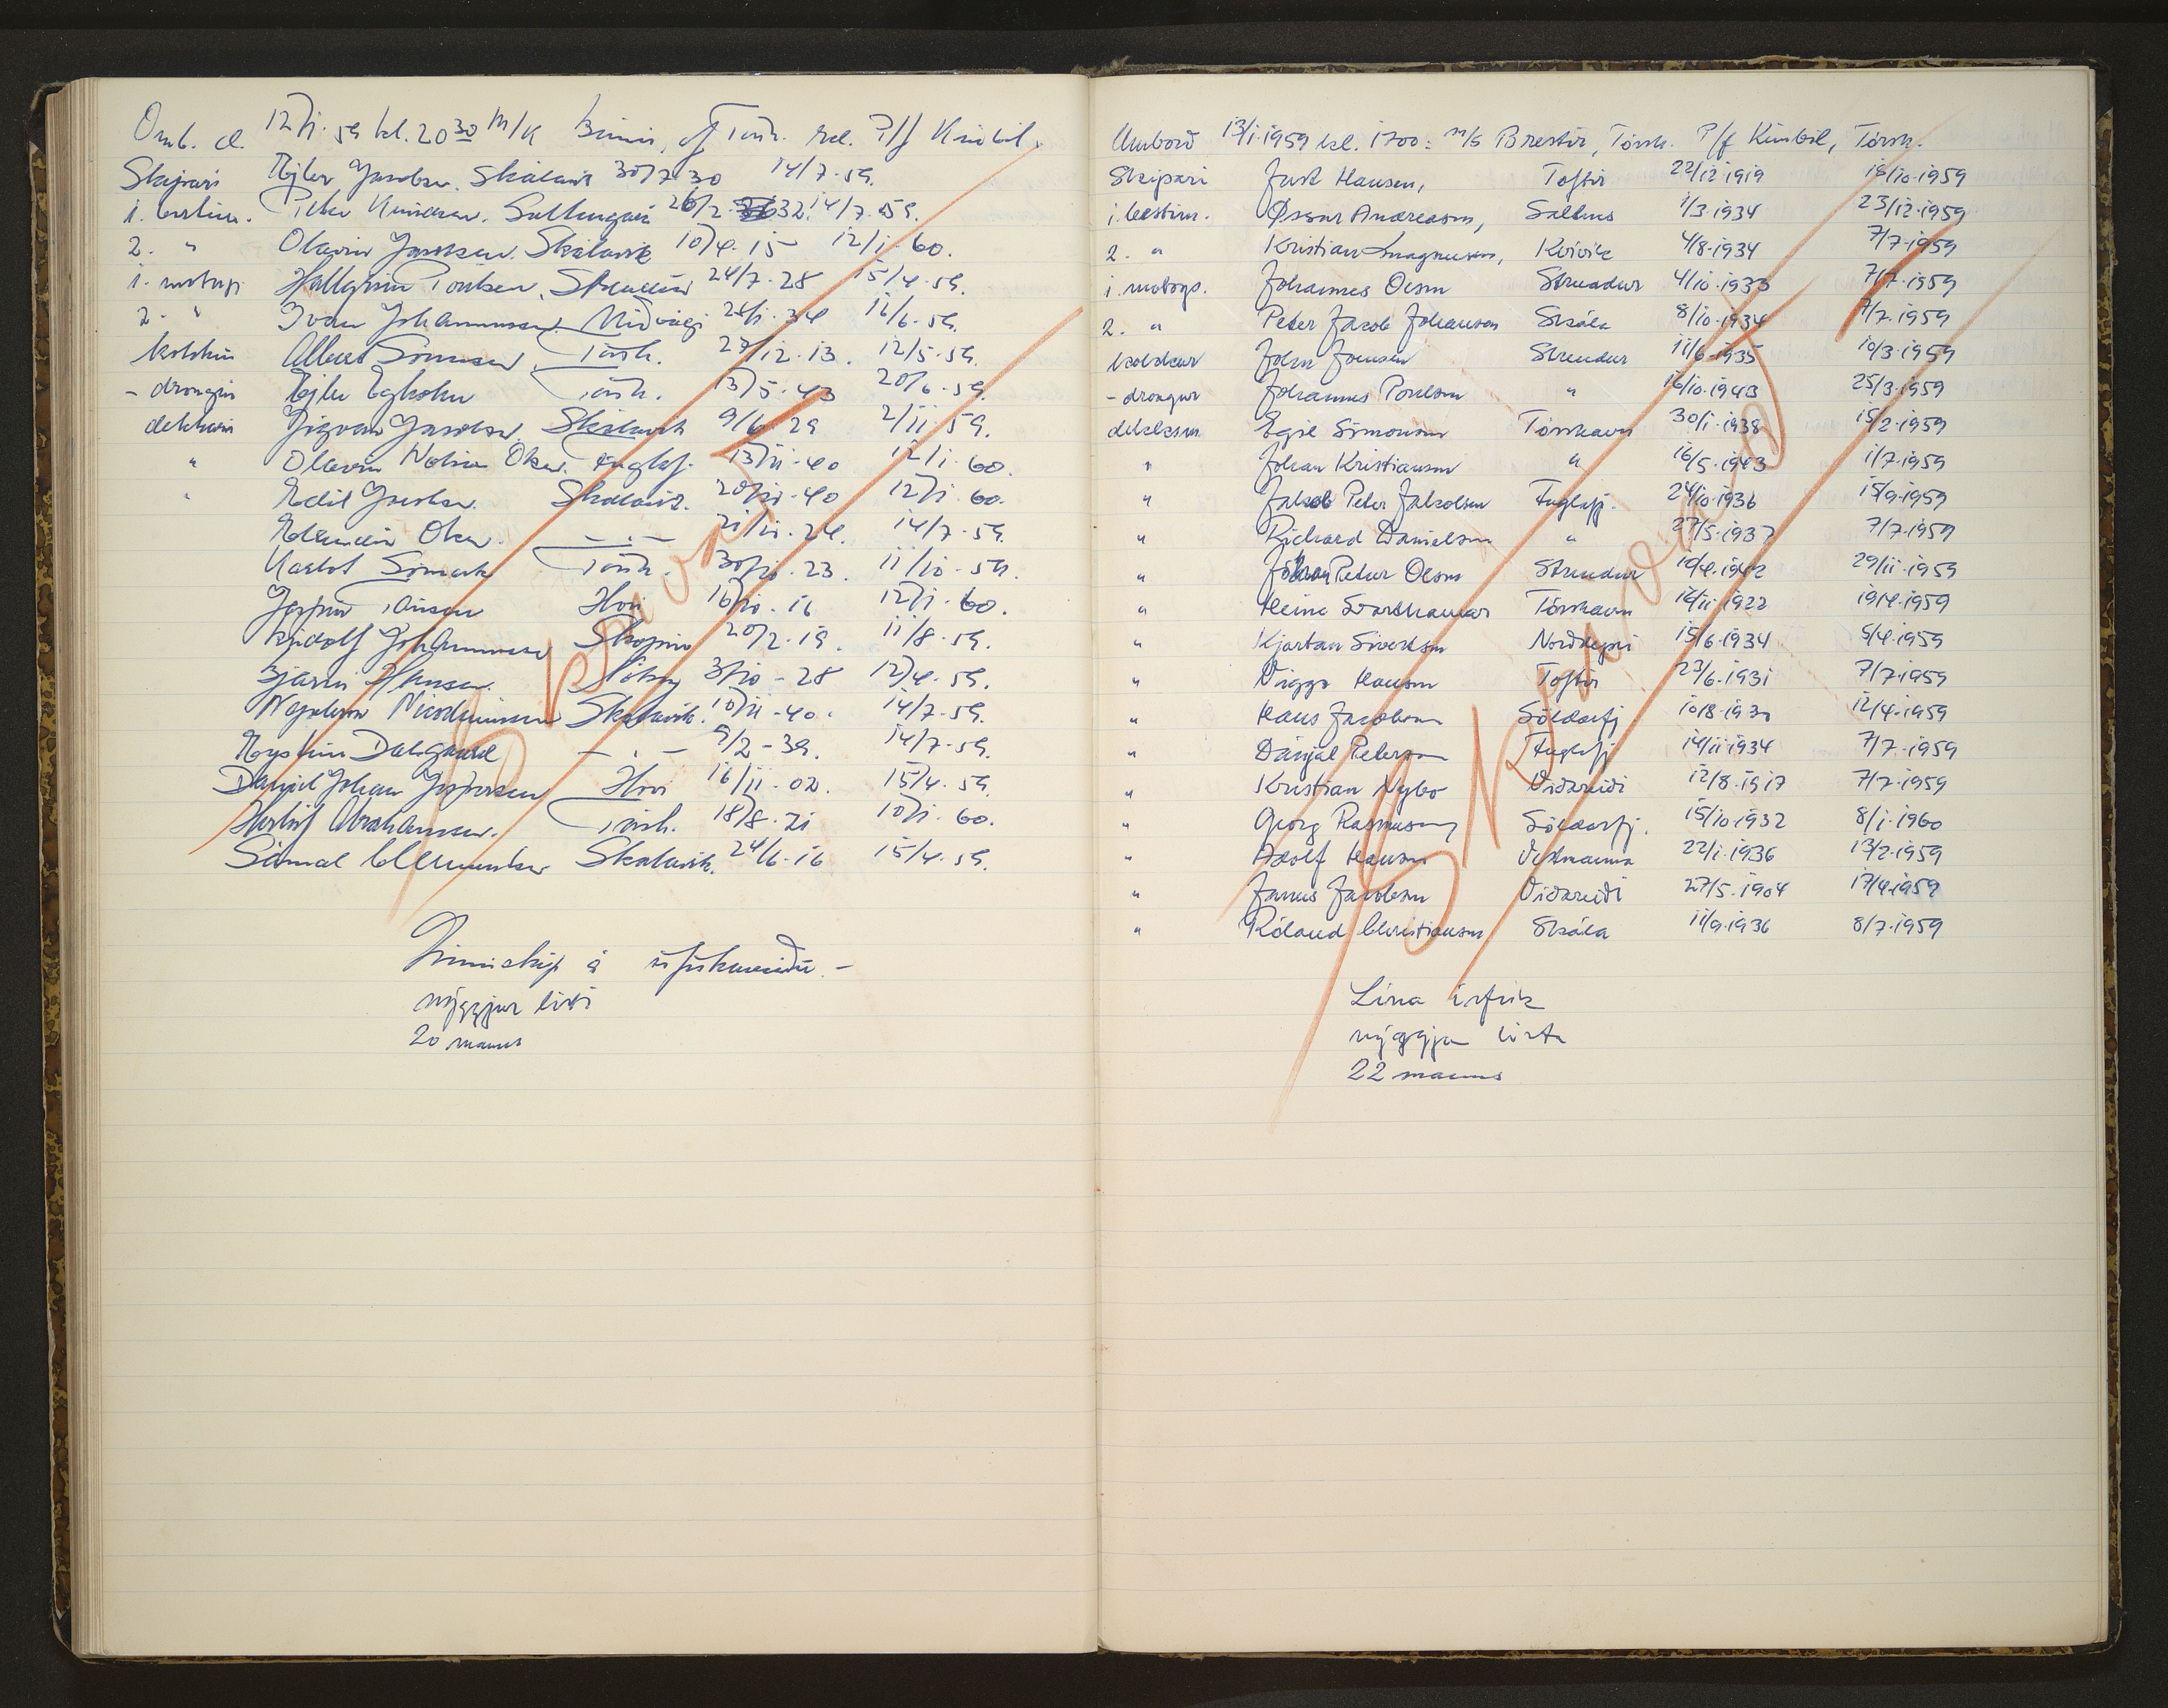 Omb. d. 12/1. 59 kl. 20 30 M/K Binnis, af Tórsh. P/f Kimbil.
Skipari Ejler Jacobsen. Skálavík 30/7 30 14/7. 59.
1. bestm. Peter Knudsen. 26/2. 32. 14/7. 59.
2. " Olavur Jacobsen. Skálavík 10/4. 15 12/1. 60.
1. Hallgrim Poulsen. Strendur 24/7. 28 15/4. 59.
2. " Ivan Johannesen. Miðvági 28/1. 34 16/6. 59.
Albert Simonsen. Tórsh. 27/12. 13. 12/5. 59.
- drongur Ejler Egholm Tórsh. 13/5. 43 20/6. 59.
Jacobsen. Skálavík 9/6. 29 2/11. 59.
" Olavur Olsen. Fuglafj. 13/11. 40 12/1. 60.
" Jacobsen. Skálavík. 20/10. 40 12/1. 60.
Olsen. — " — 21/10. 24. 14/7. 59.
Tórsh. 30/10. 23. 11/10. 59.
Hvi 16/10. 16 12/1. 60.
Rudolf Johannesen Skopun 20/2. 19. 11/8. 59.
Bjarni Hansen. 3/10 - 28 12/4. 59.
Napoleon Nicodemussen Skálavík. 10/11 - 40. 14/7. 59.
Dalsgaard — " — 9/2 - 39. 14/7. 59.
Daniel Johan Jespersen Hvi 16/11. 02. 15/4. 59.
Herluf Abrahamsen. Tórsh. 18/8. 21 10/1. 60.
Sámal Clementsen Skálavík. 24/6. 16 15/4. 59.
á
nýggjur listi
20 manns
Umborð 13/1. 1959 kl. 1700: M/S Brestir, Tórsh. P/f Kimbil, Tórsh.
Skipari Just Hansen, Toftir 22/12 1919 18/10. 1959
1. bestm. Øssur Andreasen, Saltnes 1/3. 1934 23/12. 1959
2. " Kristian Magnussen, Kvívík 4/8. 1934 7/7. 1959
1. motorp. Johannes Olsen Strendur 4/10. 1933 7/7. 1959
2. " Peter Jacob Johansen Skála 8/10. 1934 7/7. 1959
kokkur John Joensen Strendur 11/6. 1935 10/3. 1959
- drongur Johannes Poulsen " 16/10. 1943 25/3. 1959
dekksm. Egil Simonsen Tórshavn 30/1. 1938 15/2. 1959
" Johan Kristiansen " 16/5. 1943 1/7. 1959
" Jakob Peter Jakobsen Fuglafj. 24/10. 1936 15/9. 1959
" Richard Danielsen " 27/5. 1937 7/7. 1959
" Johan Petur Olsen Strendur 10/4. 1942 29/11. 1959
" Heine Svarthamar Tórshavn 16/11 1922 19/4. 1959
" Kjartan Sivertsen Norðdepli 15/6. 1934 5/4. 1959
" Viggo Hansen Toftir 23/6. 1931 7/7 1959
" Hans Jacobsen Söldarfj. 10/8. 1930 12/4. 1959
" Dánjal Petersen Fuglafj. 14/11 1934 7/7. 1959
" Kristian Nybo Viðareiði 12/8. 1917 7/7. 1959
" Georg Rasmussen Söldarfj. 15/10. 1932 8/1. 1960
" Adolf Hansen Vestmanna 22/1. 1936 13/2. 1959
" Janus Jacobsen Viðareiði 27/5. 1904 17/4. 1959
" Róland Christiansen Skála 11/9. 1936 8/7. 1959
Lína
nýggja lista
22 manns